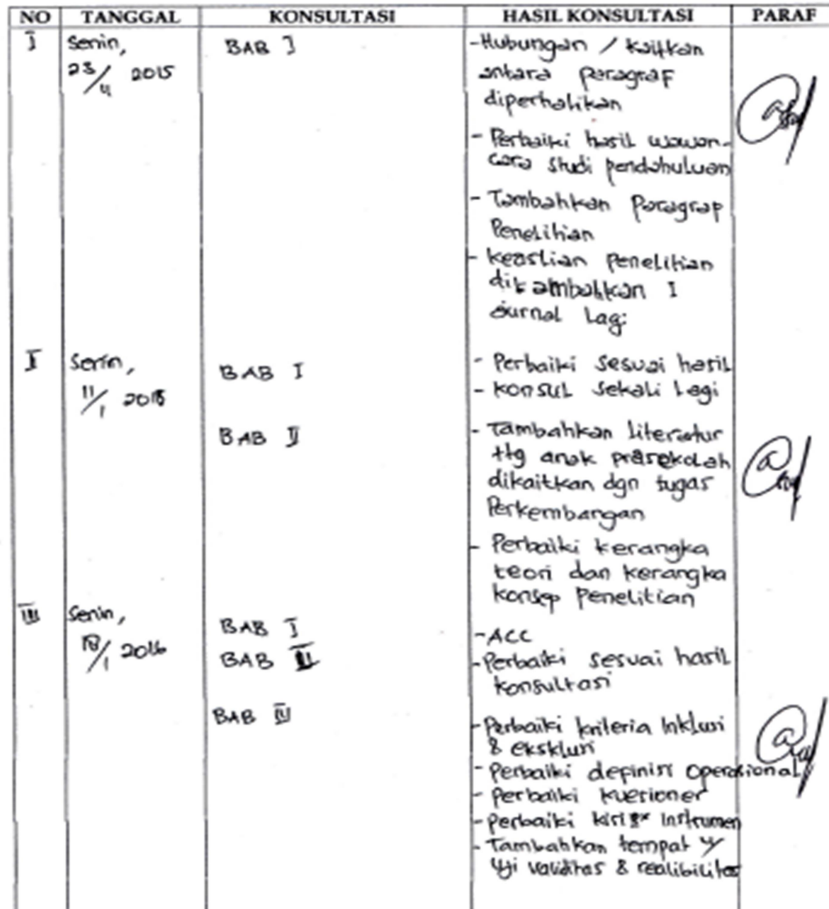 NO TANGGAL KONSULTASI HASIL KONSULTASI PARAF
I Senin, BAB I -Hubungan / kaitkan
23/11 2015 antara paragraf
diperhatikan
- Perbaiki hasil wawan-
cara studi pendahuluan
- Tambahkan Paragrap
Penelitian
- keaslian penelitian
ditambahkan I
Jurnal Lagi
II Senin, BAB I - Perbaiki sesuai hasil
11/1 2016 - Konsul sekali lagi
BAB II - Tambahkan literatur
ttg anak prasekolah
dikaitkan dgn tugas
Perkembangan
- Perbaiki kerangka
teori dan kerangka
konsep Penelitian
III Senin, BAB I -ACC
18/1 2016 BAB II -Perbaiki sesuai hasil
konsultasi
BAB III -Perbaiki kriteria Inklusi
& eksklusi
- Perbaiki definisi Operasional
- Perbaiki kuesioner
- Perbaiki kisi Instrumen
- Tambahkan tempat u/
Uji validitas & realibilitas